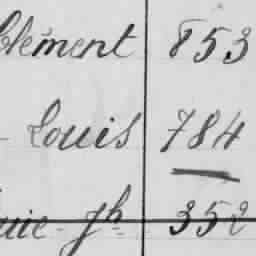 Clément 853
- Louis 784
uie Jh 352